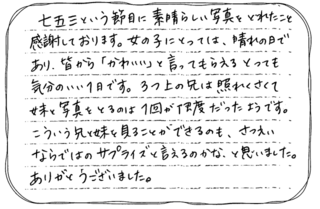 七五三という節目に素晴らしい写真をとれたこと
感謝しております。女の子にとっては、晴れの日で
あり、皆から「かわいい」と言ってもらえるとっても
気分のいい1日です。3つ上の兄は照れくさくて
妹と写真をとるのは1回が限度だったようです。
こういう兄と妹を見ることができるのも、さつえい
ならではのサプライズと言えるのかな、と思いました。
ありがとうございました。